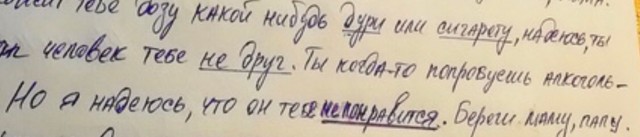 тебе дозу какой нибудь дури или сигарету, надеюсь, ты
человек тебе не друг. Ты когда-то попробуешь алкоголь-
Но я надеюсь, что он тебе не понравится. Береги маму, папу.